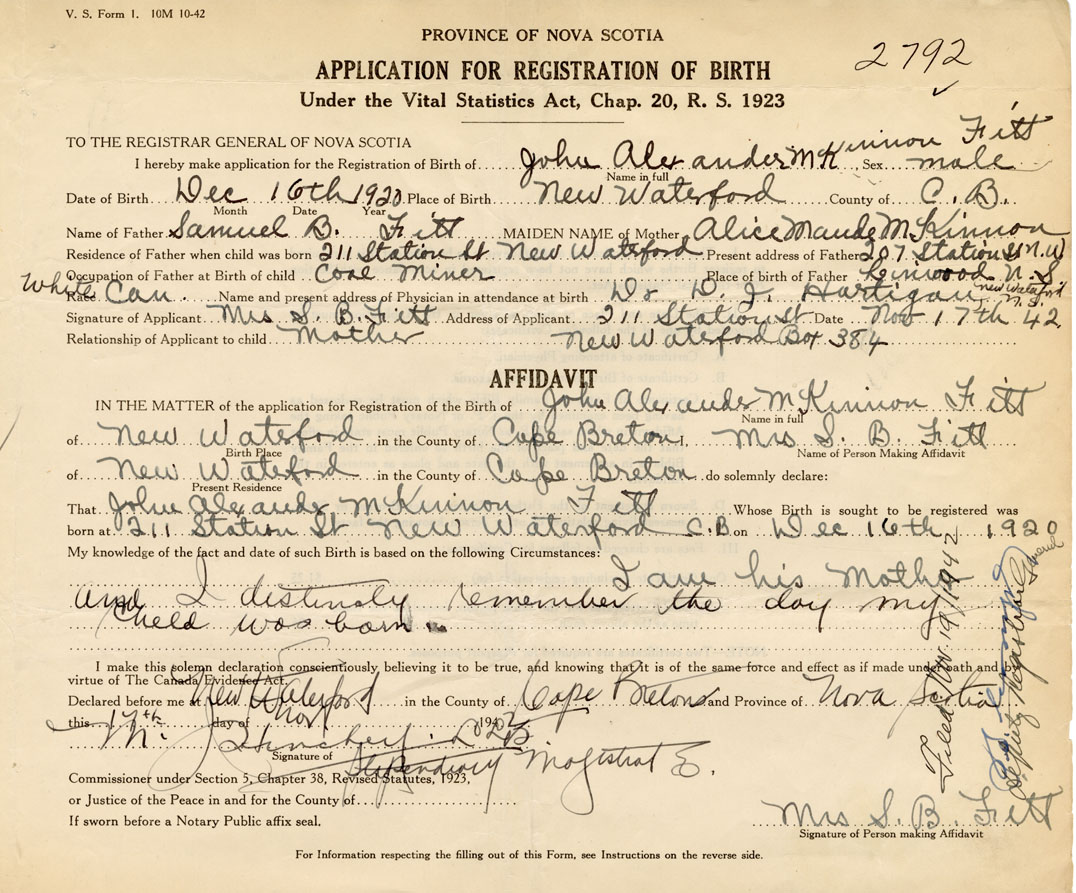 V. S. Form 1. 10M 10-42
PROVINCE OF NOVA SCOTIA
2792
APPLICATION FOR REGISTRATION OF BIRTH
Under the Vital Statistics Act, Chap. 20, R. S. 1923
TO THE REGISTRAR GENERAL OF NOVA SCOTIA
I hereby make application for the Registration of Birth of John Alexander McKinnon Fitt Sex male
Name in full
Date of Birth Dec 16th 1920 Place of Birth New Waterford County of C.B.
Month Date Year
Name of Father Samuel B. Fitt MAIDEN NAME of Mother Alice Maude McKinnon
Residence of Father when child was born 211 Station St New Waterford Present address of Father 207 Station St N.W
Occupation of Father at Birth of child Coal Miner Place of birth of Father Kenwood N.S
White
Race Can. Name and present address of Physician in attendance at birth Dr D. J. Hartigan New Waterford N.S.
Signature of Applicant Mrs S. B. Fitt Address of Applicant 211 Station St Date Nov 17th 42
Relationship of Applicant to child Mother New Waterford Box 384
AFFIDAVIT
IN THE MATTER of the application for Registration of the Birth of John Alexander McKinnon Fitt
Name in full
of New Waterford in the County of Cape Breton, Mrs S. B. Fitt
Birth Place Name of Person Making Affidavit
of New Waterford in the County of Cape Breton do solemnly declare:
Present Residence
That John Alexander McKinnon Fitt Whose Birth is sought to be registered was
born at 211 Station St New Waterford C.B on Dec 16th 1920
My knowledge of the fact and date of such Birth is based on the following Circumstances:
I am his Mother
and I distincly remember the day my
child was born.
I make this solemn declaration conscientiously, believing it to be true, and knowing that it is of the same force and effect as if made under oath and by
virtue of The Canada Evidence Act.
Declared before me at New Waterford in the County of Cape Breton and Province of Nova Scotia
this 17th day of Nov 1942
Signature of
Stipendiary Magistrate
Commissioner under Section 5, Chapter 38, Revised Statutes, 1923,
or Justice of the Peace in and for the County of
If sworn before a Notary Public affix seal.
Mrs S. B. Fitt
Signature of Person making Affidavit
Filed Nov 19, 1942
Deputy Registrar General
For Information respecting the filling out of this Form, see Instructions on the reverse side.